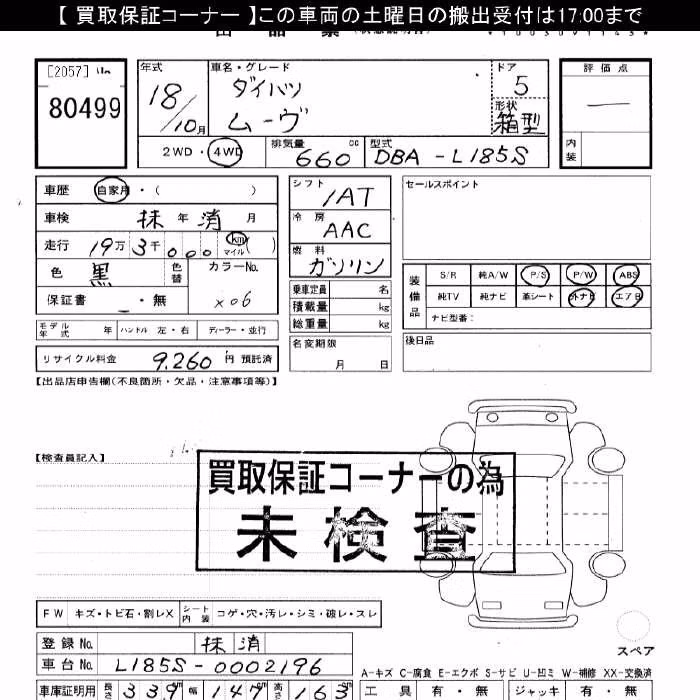 【 買取保証コーナー 】この車両の土曜日の搬出受付は17:00まで
[2057]
80499
年式
18/10月
車名・グレード
ダイハツ
ムーヴ
ドア
5
形状
箱型
評価点
—
内装
2WD・4WD
排気量
660 cc
型式
DBA-L185S
車歴 自家用・( )
車検 抹 年 消 月
走行 19万 3千 000 km マイル ( )
色 黒 色替
カラーNo.
X06
保証書 ・無
シフト
IAT
冷房
AAC
燃料
ガソリン
乗車定員 名
積載量 kg
総重量 kg
名変期限
月 日
セールスポイント
装備品
S/R 純A/W P/S P/W ABS
純TV 純ナビ 革シート 外ナビ エアB
ナビ型番:
後日品
モデル年式 年 ハンドル 左・右 ディーラー・並行
リサイクル料金 9.260 円 預託済
【出品店申告欄(不良箇所・欠品・注意事項等)】
【検査員記入】
買取保証コーナーの為
未検査
FW キズ・トビ石・割レX シート内装 コゲ・穴・汚レ・シミ・破レ・スレ
登録No. 抹消
車台No. L185S-0002196
スペア
A-キズ C-腐食 E-エクボ S-サビ U-凹ミ W-補修 XX-交換済
車庫証明用 長さ 339 幅 147 高さ 163
工具 有・無 ジャッキ 有・無